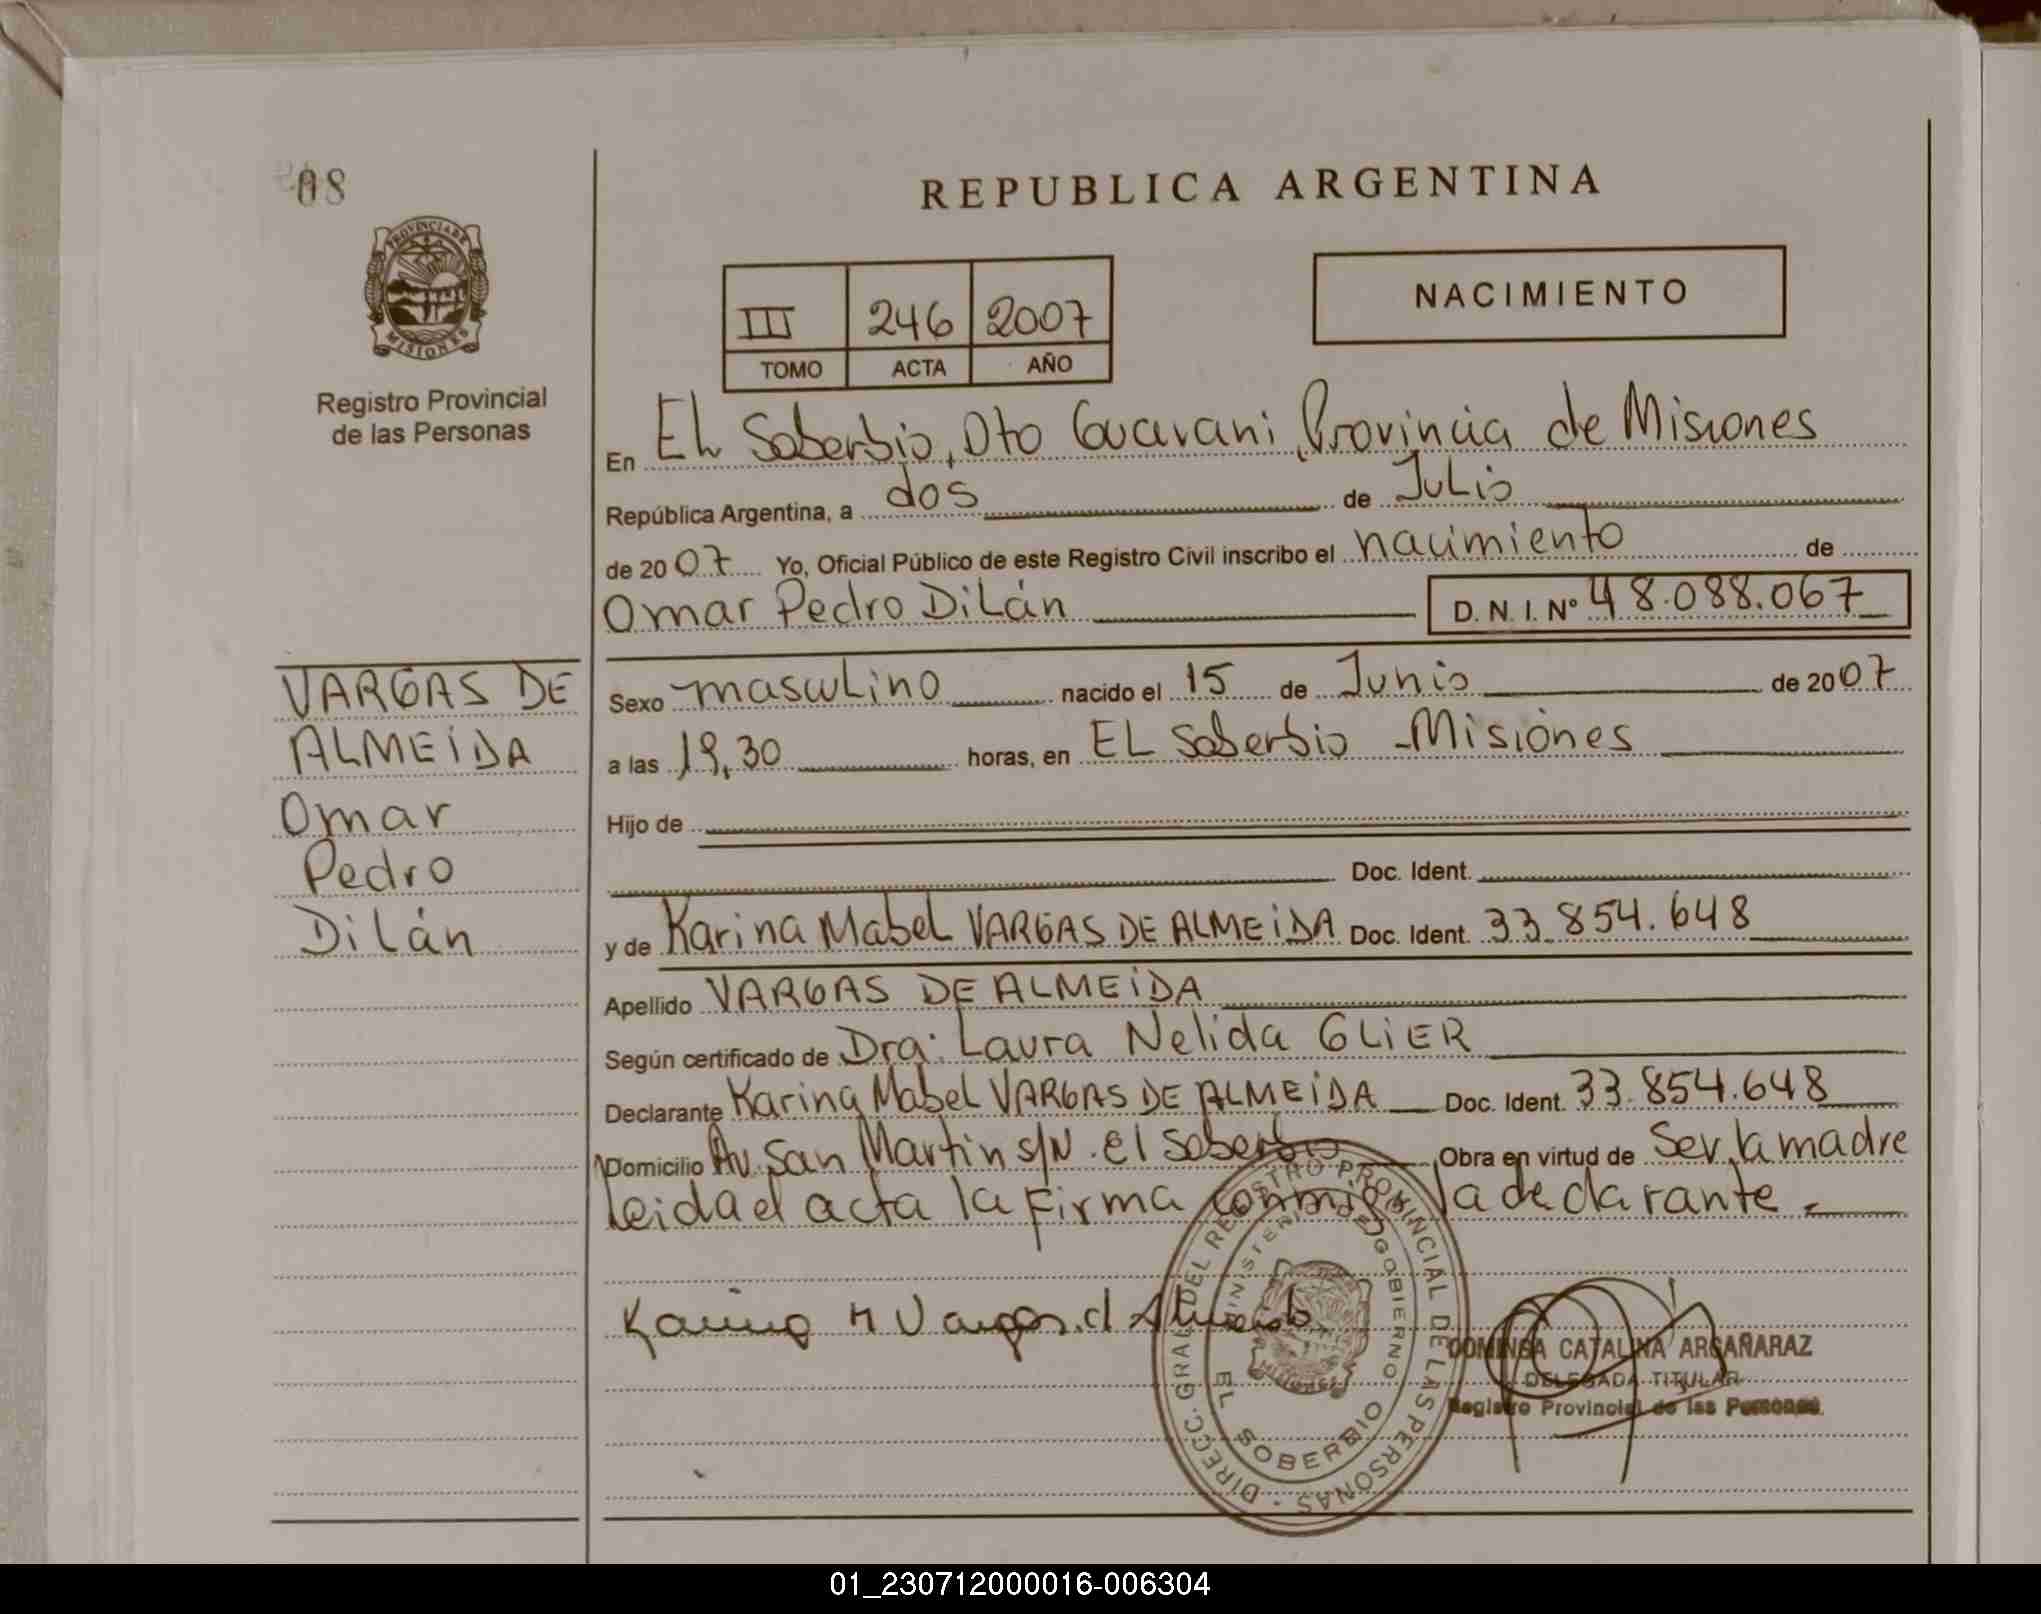 08
PROVINCIA DE
MISIONES
Registro Provincial
de las Personas
VARGAS DE
ALMEIDA
Omar
Pedro
Dilán
REPUBLICA ARGENTINA
III 246 2007
TOMO ACTA AÑO
NACIMIENTO
En EL Soberbio, Dto Guarani, Provincia de Misiones
República Argentina, a dos de Julio
de 2007 Yo, Oficial Público de este Registro Civil inscribo el nacimiento de
Omar Pedro Dilán D. N. I. Nº 48.088.067
Sexo masculino nacido el 15 de Junio de 2007
a las 19,30 horas, en EL Soberbio - Misiones
Hijo de
Doc. Ident.
y de Karina Mabel VARGAS DE ALMEIDA Doc. Ident. 33.854.648
Apellido VARGAS DE ALMEIDA
Según certificado de Dra. Laura Nelida GLIER
Declarante Karina Mabel VARGAS DE ALMEIDA Doc. Ident. 33.854.648
Domicilio Av. San Martin s/N. El Soberbio Obra en virtud de Ser la madre
leida el acta la firma conmigo la declarante.
Karina M Vargas d Almeida
DIRECC. GRAL. DEL REGISTRO PROVINCIAL DE LAS PERSONAS
MINISTERIO DE GOBIERNO
MISIONES
EL SOBERBIO
DOMINGA CATALINA ARGAÑARAZ
DELEGADA TITULAR
Registro Provincial de las Personas
01_230712000016-006304